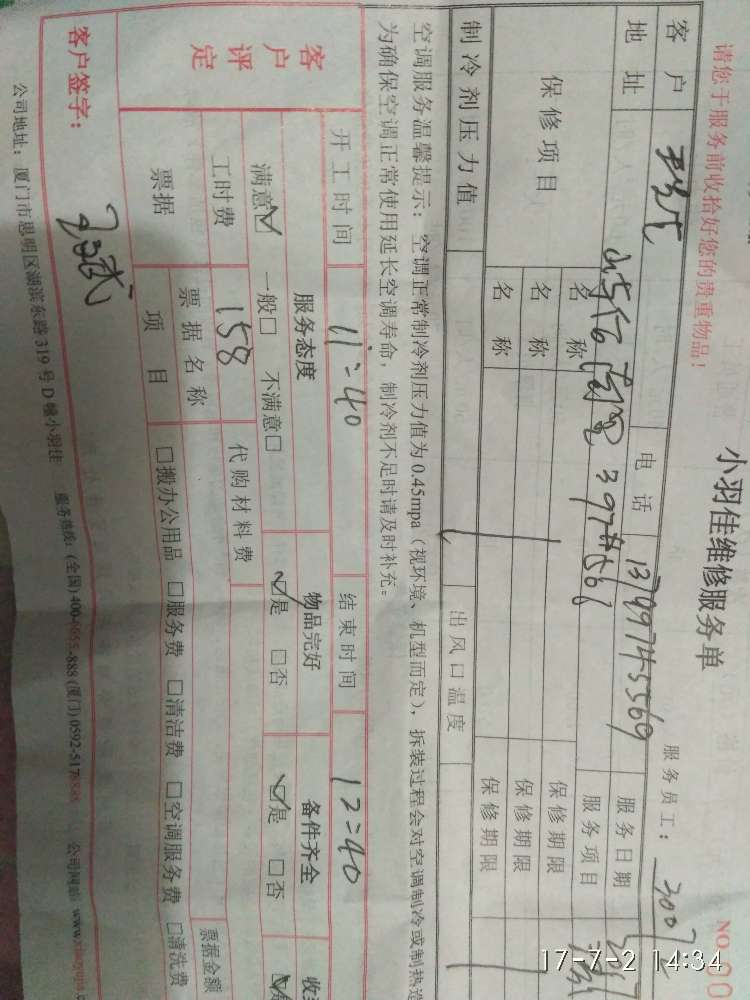 小羽佳维修服务单
请您于服务前收拾好您的贵重物品！
服务员工：3007
NO.
客户
电话
服务日期
地址
397#
服务项目
保修项目
名称
保修期限
名称
保修期限
名称
保修期限
制冷剂压力值
出风口温度
空调服务温馨提示：空调正常制冷剂压力值为0.45mpa（视环境、机型而定），拆装过程会对空调制冷或制热造
为确保空调正常使用延长空调寿命，制冷剂不足时请及时补充。
开工时间 11:40 结束时间 12:40
客户评定
服务态度 物品完好 备件齐全
满意☑ 一般□ 不满意□ ☑是 □否 ☑是 □否
工时费 158 代购材料费
票据
票据名称
票据金额
项目 □搬办公用品 □服务费 □清洁费 □空调服务费 □清洗费
客户签字：
公司地址：厦门市思明区湖滨东路319号D幢小羽佳 服务热线：(全国)400- 公司网站
17-7-2 14:34